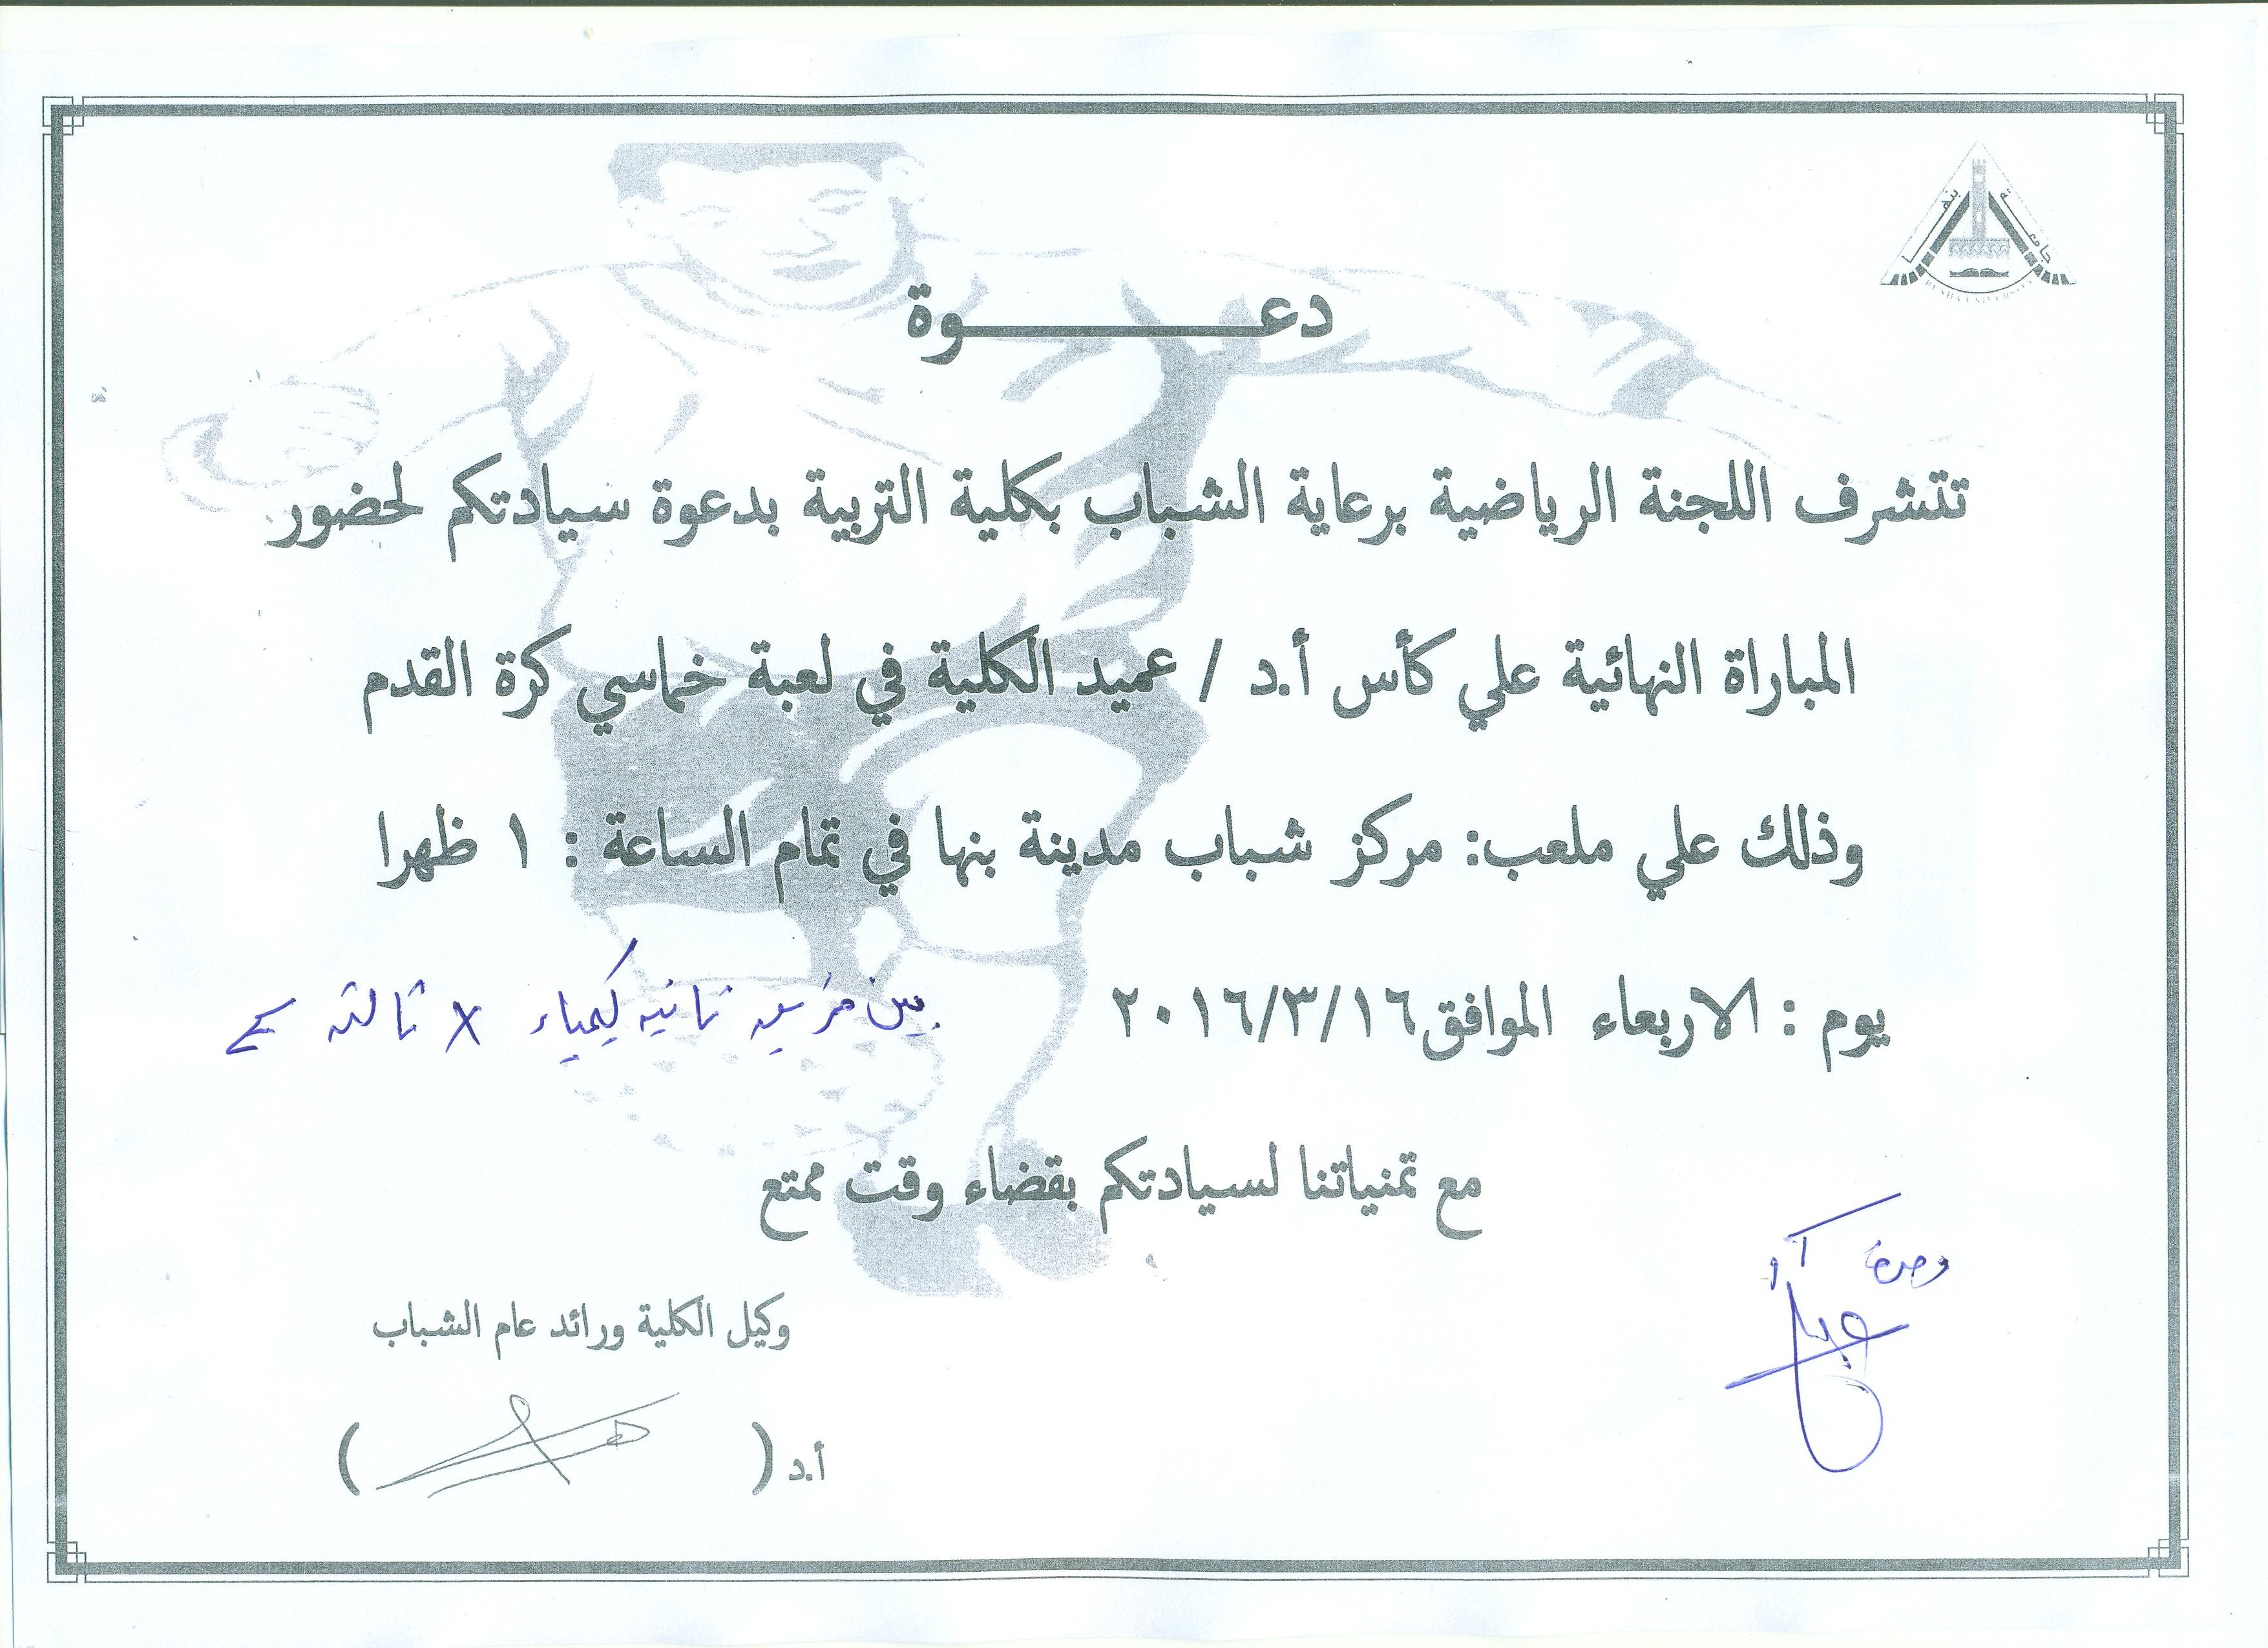 جامعة بنها
BENHA UNIVERSITY
دعـــــــــوة
تتشرف اللجنة الرياضية برعاية الشباب بكلية التربية بدعوة سيادتكم لحضور
المباراة النهائية علي كأس أ.د / عميد الكلية في لعبة خماسي كرة القدم
وذلك علي ملعب: مركز شباب مدينة بنها في تمام الساعة : ١ ظهرا
يوم : الاربعاء الموافق٢٠١٦/٣/١٦ بين فريق تانيه كيمياء x تالته
مع تمنياتنا لسيادتكم بقضاء وقت ممتع
وكيل الكلية ورائد عام الشباب
أ.د ( )